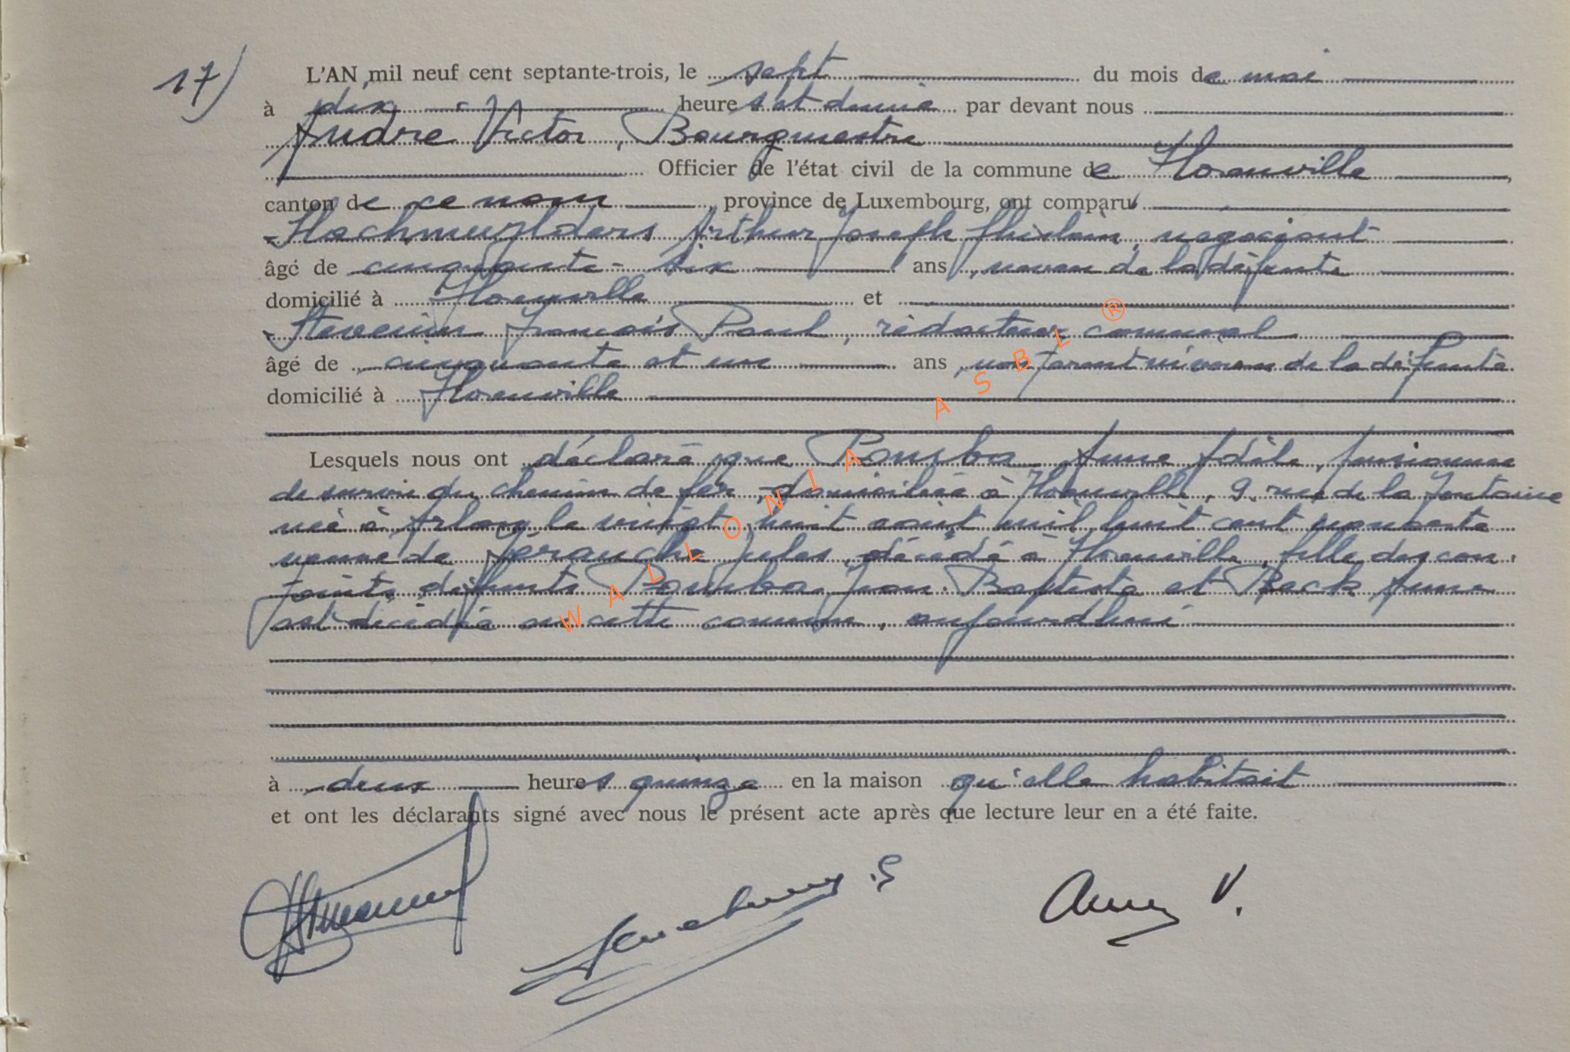 17) L'AN mil neuf cent septante-trois, le sept du mois de mai
à dix heures et demie par devant nous
André Victor, Bourgmestre
Officier de l'état civil de la commune de Florenville
canton de ce nom, province de Luxembourg, ont comparu
Arthur Joseph Ghislain, négociant
âgé de cinquante-six ans, neveu de la défunte
domicilié à Florenville et
Stevenin François Paul, rédacteur communal
âgé de cinquante et un ans, non parent ni voisin de la défunte
domicilié à Florenville
Lesquels nous ont déclaré que Pomba Anne Adèle, pensionnée
de survie du chemin de fer, domiciliée à Florenville, 9, rue de la Fontaine
née à Arlon le vingt huit août mil huit cent nonante
veuve de Jules, décédé à Florenville, fille des con-
joints défunts Pomba Jean-Baptiste et Beck Anne
est décédée en cette commune, aujourd'hui
à deux heures quinze en la maison qu'elle habitait
et ont les déclarants signé avec nous le présent acte après que lecture leur en a été faite.
WALLONIA ASBL ®